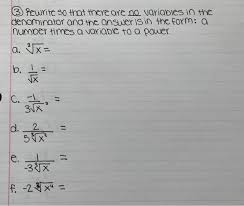 ③ Rewrite so that there are no variables in the
denominator and the answer is in the form: a
number times a variable to a power
a. ∛x =
b. 1/√x =
c. -1/3√x =
d. 2/5√x =
e. 1/-3∛x =
f. -2 √x⁴ =